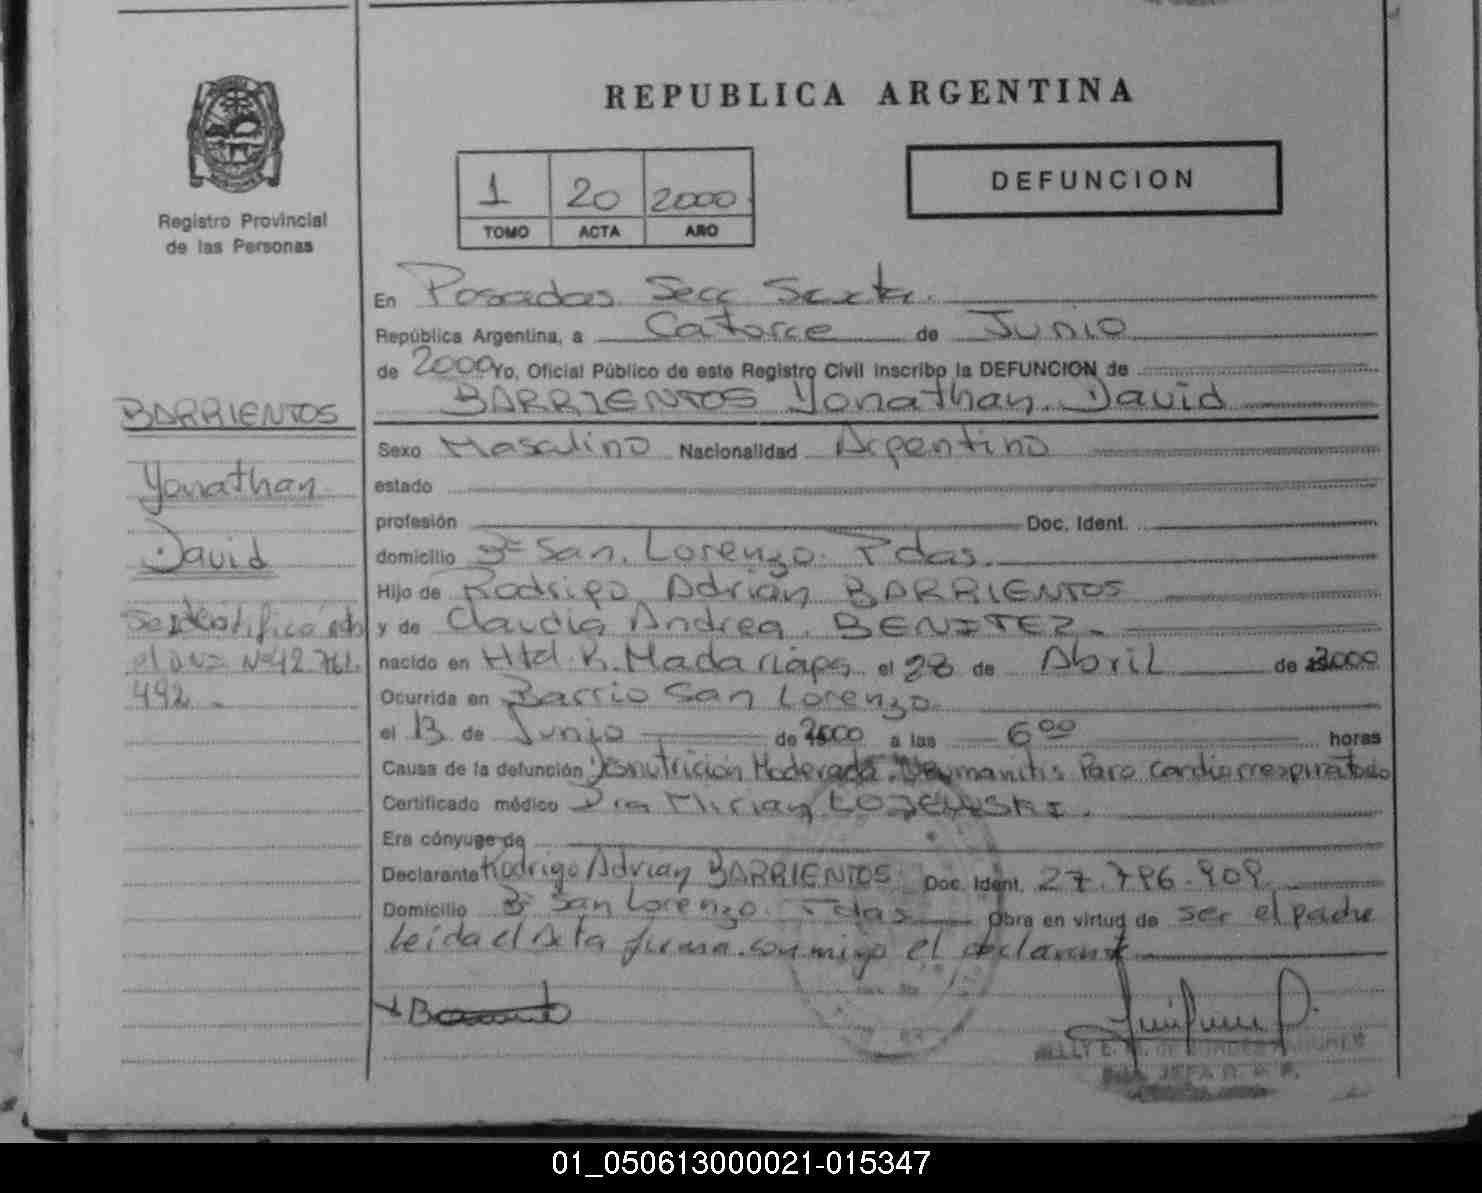 REPUBLICA ARGENTINA
1 20 2000
TOMO ACTA AÑO
DEFUNCION
Registro Provincial
de las Personas
BARRIENTOS
Yonathan
David
Se identificó
el DNI Nº 42.761.
492.
En Posadas Secc Sexta.
República Argentina, a Catorce de Junio
de 2000 Yo, Oficial Público de este Registro Civil inscribo la DEFUNCION de
BARRIENTOS Yonathan David
Sexo Masculino Nacionalidad Argentino
estado
profesión Doc. Ident.
domicilio Bº San Lorenzo. Pdas.
Hijo de Rodrigo Adrián BARRIENTOS
y de Claudia Andrea BENITEZ.
nacido en Htal. R. Madariaga el 28 de Abril de 2000
Ocurrida en Barrio San Lorenzo
el 13 de Junio de 2000 a las 6 00 horas
Causa de la defunción Desnutrición Moderada. Neumonitis Paro Cardiorrespiratorio
Certificado médico Dra Mirian LOJEWSKI.
Era cónyuge de
Declarante Rodrigo Adrian BARRIENTOS Doc. Ident. 27.786.909
Domicilio Bº San Lorenzo. Pdas Obra en virtud de ser el padre
leída el Acta firma conmigo el declarante
JEFA R. P. P.
01_050613000021-015347